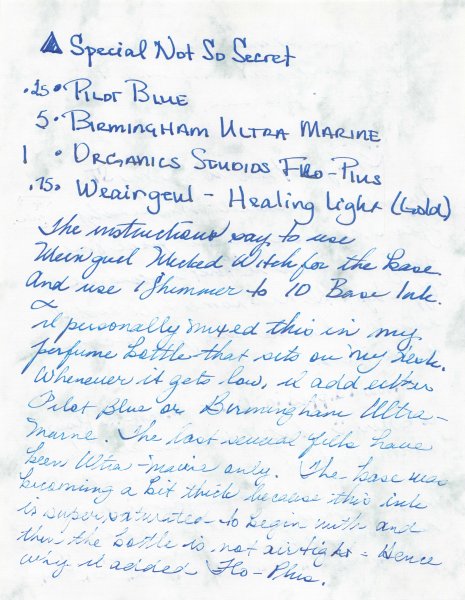 Special Not So Secret
.25 • Pilot Blue
5 • Birmingham Ultra Marine
1 • Organics Studios Flo-Plus
.75 • Weairgeul - Healing Light (Gold)
The instructions say to use
Weinguel Wicked Witch for the base
And use 1 Shimmer to 10 Base Ink.
I personally mixed this in my
perfume bottle that sits on my desk.
Whenever it gets low, I add either
Pilot Blue or Birmingham Ultra-
marne. The last several fills have
been Ultra-marine only. The base was
becoming a bit thick because this ink
is supersaturated to begin with and
then the bottle is not airtight - Hence
why I added Flo-Plus.